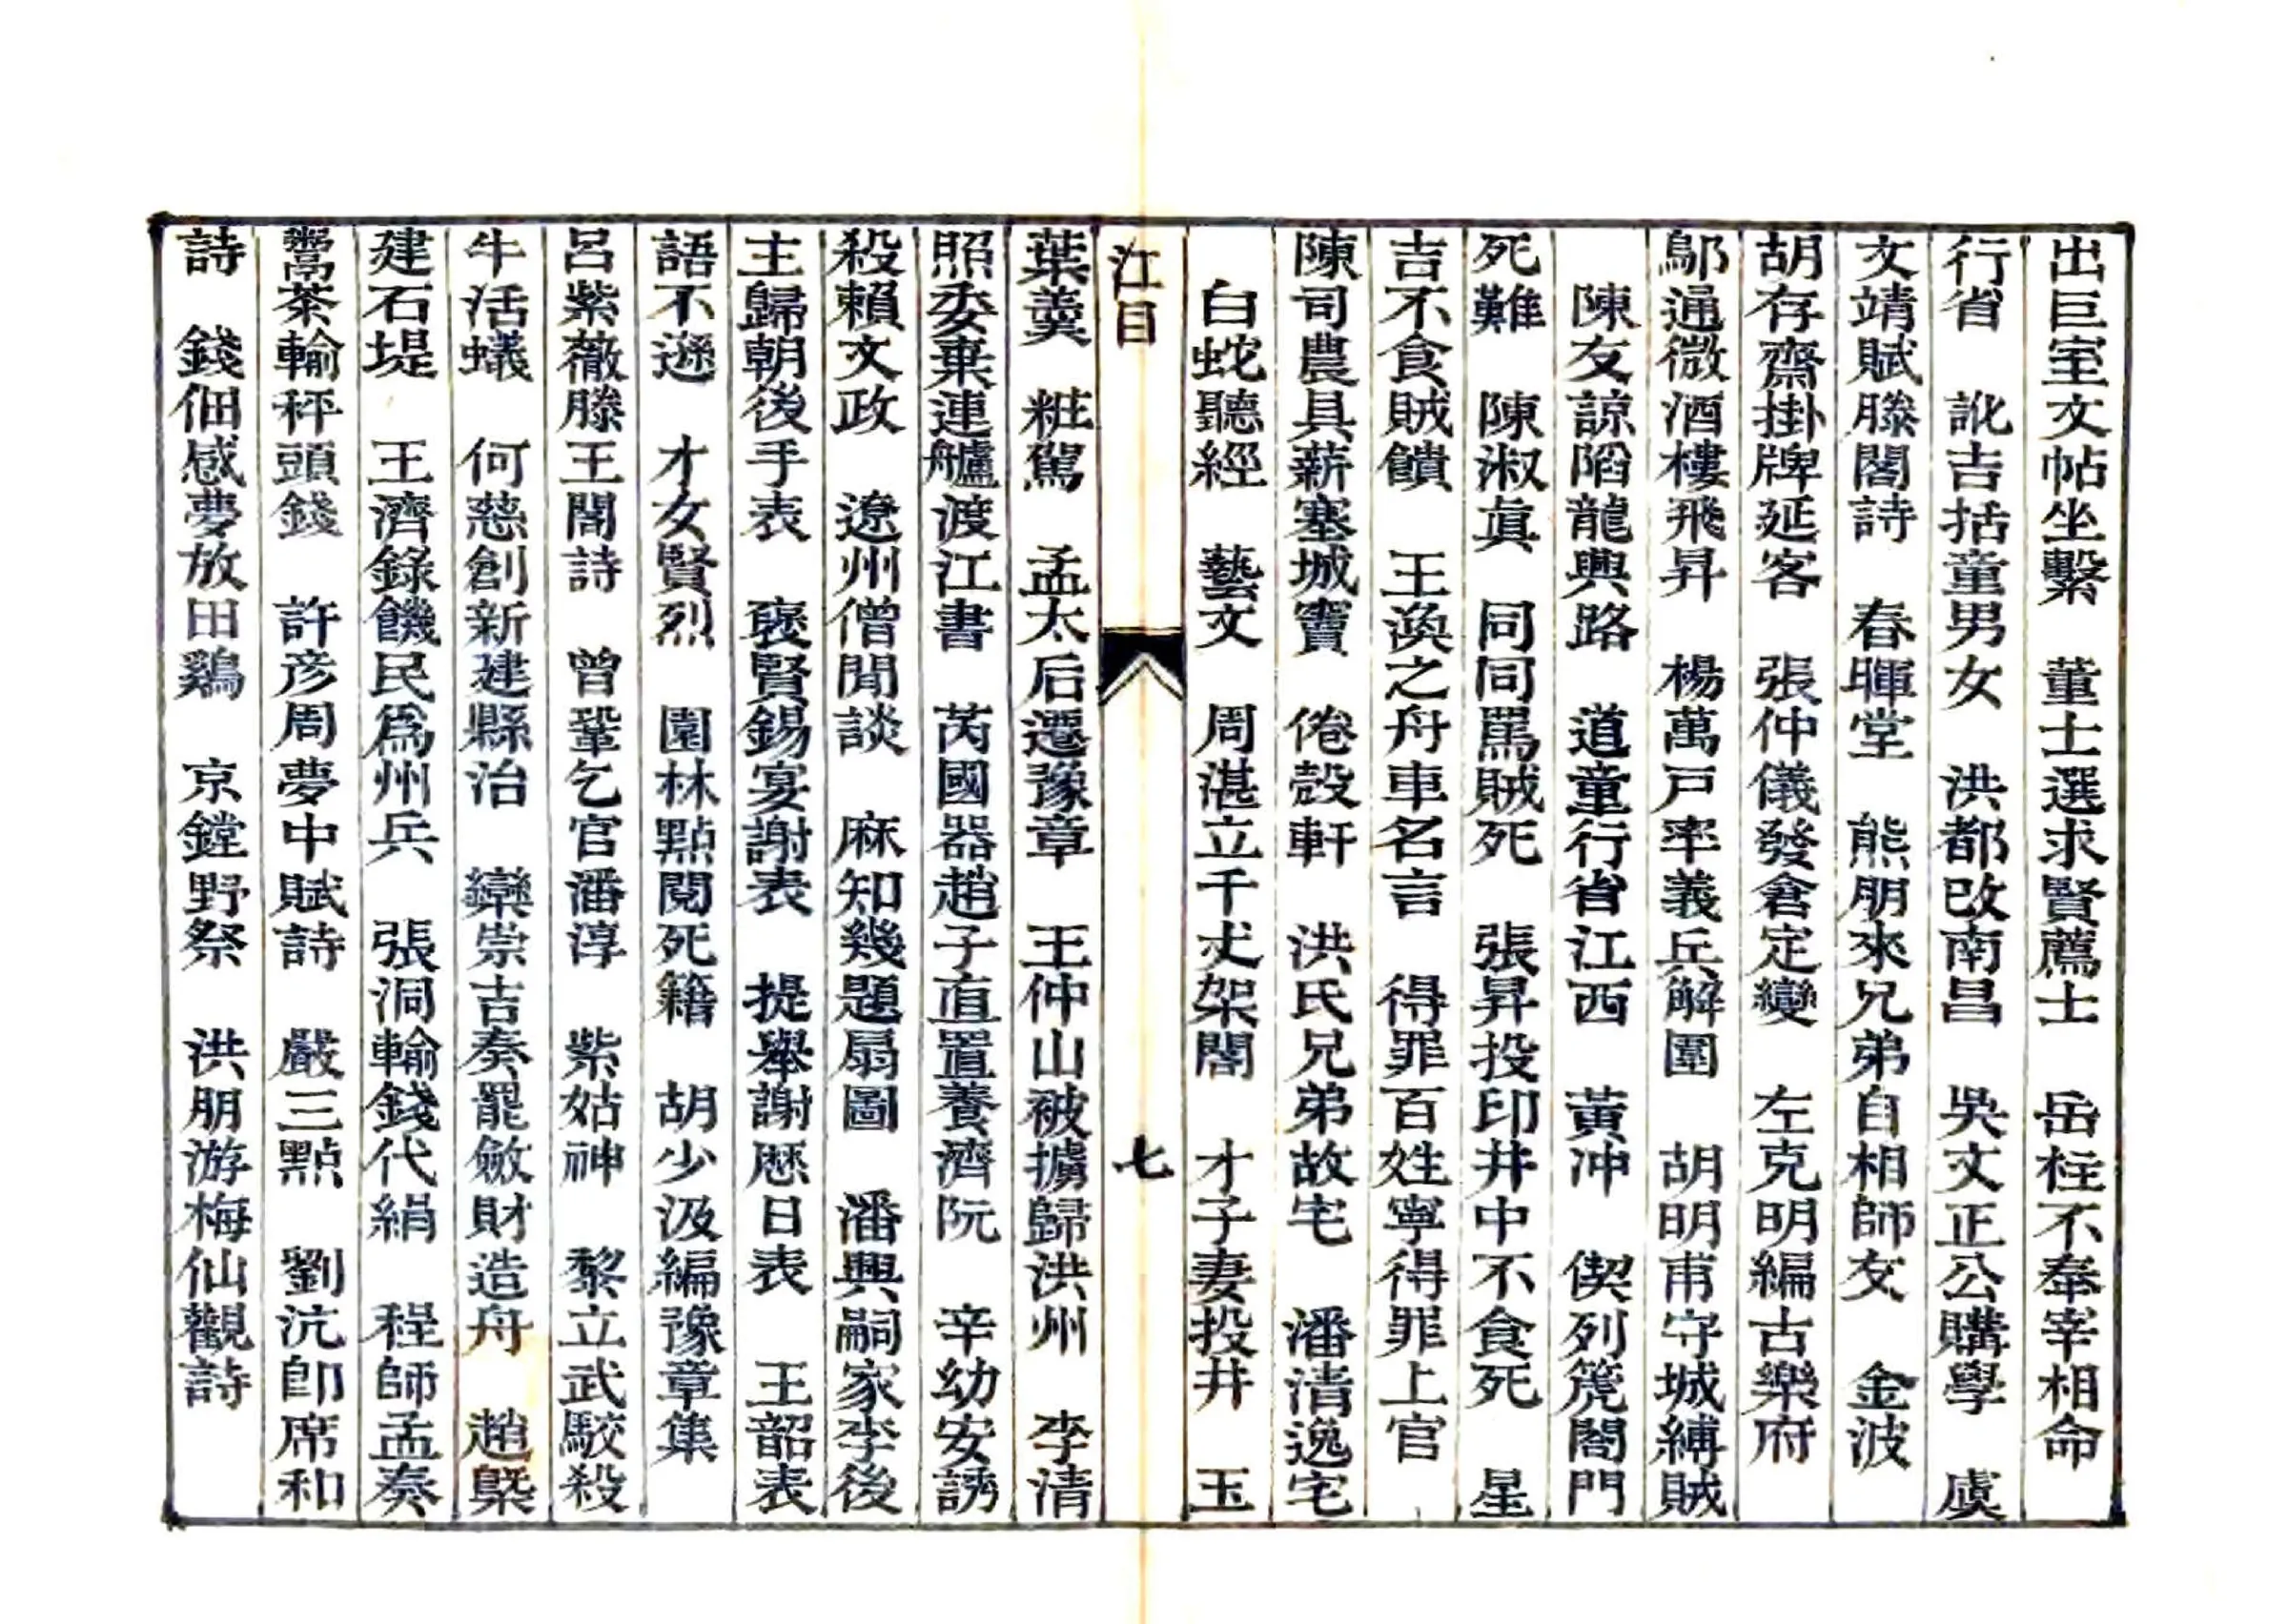 出巨室文帖坐繫　董士選求賢薦士　岳柱不奉宰相命
行省　訛吉括童男女　洪都改南昌　吳文正公購學　虞
文靖賦滕閣詩　春暉堂　熊朋來兄弟自相師友　金波
胡存齋掛牌延客　張仲儀發倉定變　左克明編古樂府
鄔通微酒樓飛昇　楊萬戸率義兵解圍　胡明甫守城縛賊
陳友諒陷龍興路　道童行省江西　黃冲　偰列箎闔門
死難　陳淑眞　同同罵賊死　張昇投印井中不食死　星
吉不食賊饋　王渙之舟車名言　得罪百姓寧得罪上官
陳司農具薪塞城竇　倦殼軒　洪氏兄弟故宅　潘清逸宅
白蛇聽經　藝文　周湛立千丈架閣　才子妻投井　玉
江目　七
葉羹　粧駕　孟太后遷豫章　王仲山被擄歸洪州　李清
照委棄連艫渡江書　芮國器趙子直置養濟阮　辛幼安誘
殺賴文政　遼州僧閒談　麻知幾題扇圖　潘興嗣家李後
主歸朝後手表　褒賢錫宴謝表　提舉謝歷日表　王韶表
語不遜　才女賢烈　園林點閱死籍　胡少汲編豫章集
呂紫薇滕王閣詩　曾鞏乞官潘淳　紫姑神　黎立武駮殺
牛活蟻　何慈創新建縣治　欒崇吉奏罷斂財造舟　趙槩
建石堤　王濟錄饑民爲州兵　張洞輸錢代絹　程師孟奏
鬻茶輸秤頭錢　許彥周夢中賦詩　嚴三點　劉沆卽席和
詩　錢佃感夢放田鷄　京鏜野祭　洪朋游梅仙觀詩